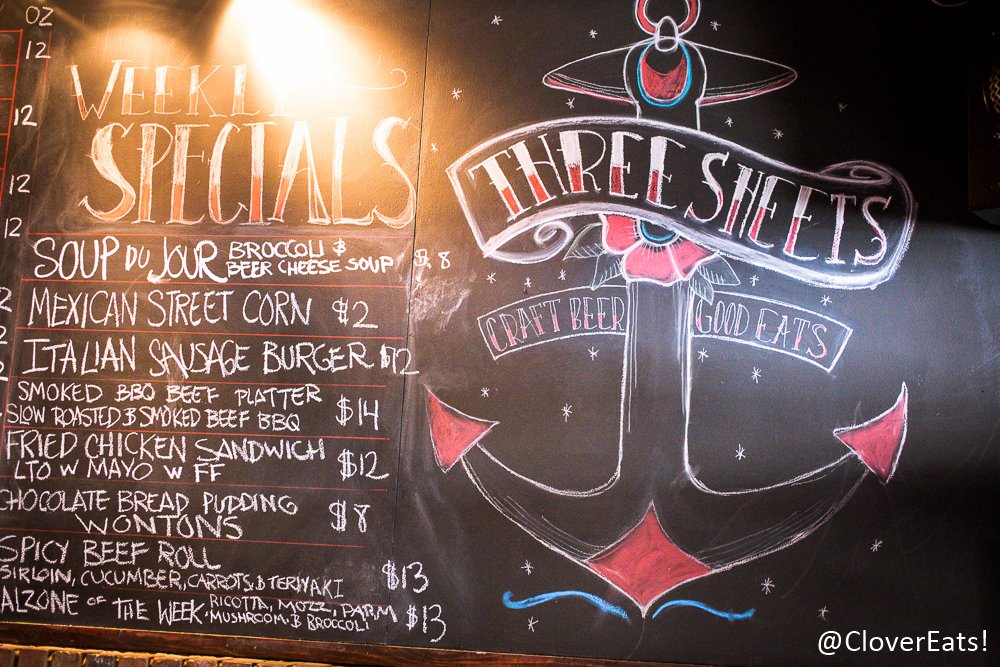 OZ
12
12
12
12
WEEKLY
SPECIALS
SOUP DU JOUR BROCCOLI &
BEER CHEESE SOUP $8
MEXICAN STREET CORN $2
ITALIAN SAUSAGE BURGER $12
SMOKED BBQ BEEF PLATTER
SLOW ROASTED & SMOKED BEEF BBQ $14
FRIED CHICKEN SANDWICH
LTO W MAYO W FF $12
CHOCOLATE BREAD PUDDING
WONTONS $8
SPICY BEEF ROLL
SIRLOIN, CUCUMBER, CARROTS, & TERIYAKI $13
ALZONE OF THE WEEK. RICOTTA, MOZZ, PARM
MUSHROOM & BROCCOLI $13
THREE SHEETS
CRAFT BEER
GOOD EATS
@CloverEats!